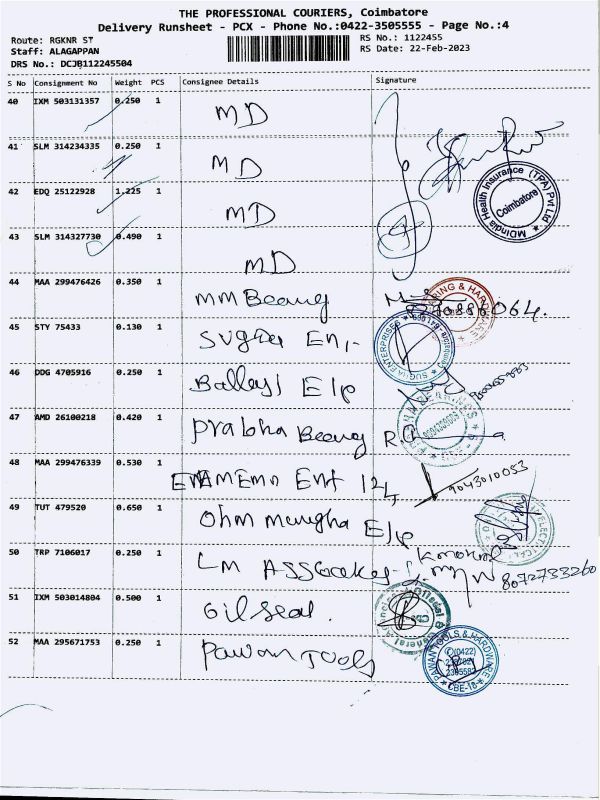 THE PROFESSIONAL COURIERS, Coimbatore
Delivery Runsheet - PCX - Phone No.:0422-3505555 - Page No.:4
Route: RGKNR ST RS No.: 1122455
Staff: ALAGAPPAN RS Date: 22-Feb-2023
DRS No.: DCJB112245504
S No Consignment No Weight PCS Consignee Details Signature
40 IXM 503131357 0.250 1 MD
41 SLM 314234335 0.250 1 MD
42 EDQ 25122928 1.225 1 MD
MDIndia Health Insurance (TPA) Pvt Ltd
Coimbatore
43 SLM 314327730 0.490 1 MD
44 MAA 299476426 0.350 1 MM Bearing
45 STY 75433 0.130 1
SUGHA ENTERPRISES
46 DDG 4705916 0.250 1
47 AMD 26100218 0.420 1 Prabha Bearing
48 MAA 299476339 0.530 1 9043010053
49 TUT 479520 0.650 1 Ohm
50 TRP 7106017 0.250 1 LM 8072733260
51 IXM 503014804 0.500 1 Oil seal.
52 MAA 295671753 0.250 1 Pawan Tools
PAWAN TOOLS & HARDWARE
(0422)
CBE-18